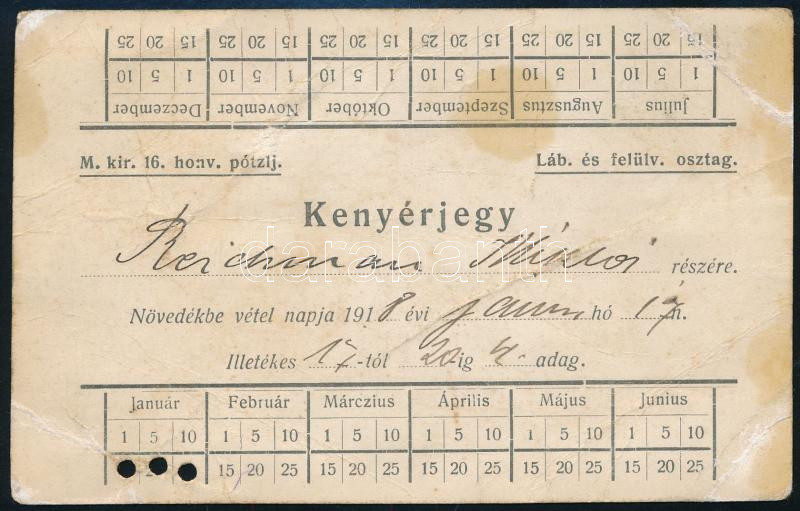 15 20 25 15 20 25 15 20 25 15 20 25 15 20 25 15 20 25
1 5 10 1 5 10 1 5 10 1 5 10 1 5 10 1 5 10
Julius Augusztus Szeptember Október November Deczember
M. kir. 16. honv. pótzlj. Láb. és felülv. osztag.
Kenyérjegy
Reichman Miklós részére.
Növedékbe vétel napja 1918 évi janu. hó 17n.
Illetékes 17-tól 20ig 4. adag.
Január Február Márczius Április Május Junius
1 5 10 1 5 10 1 5 10 1 5 10 1 5 10 1 5 10
15 20 25 15 20 25 15 20 25 15 20 25 15 20 25
darabanth